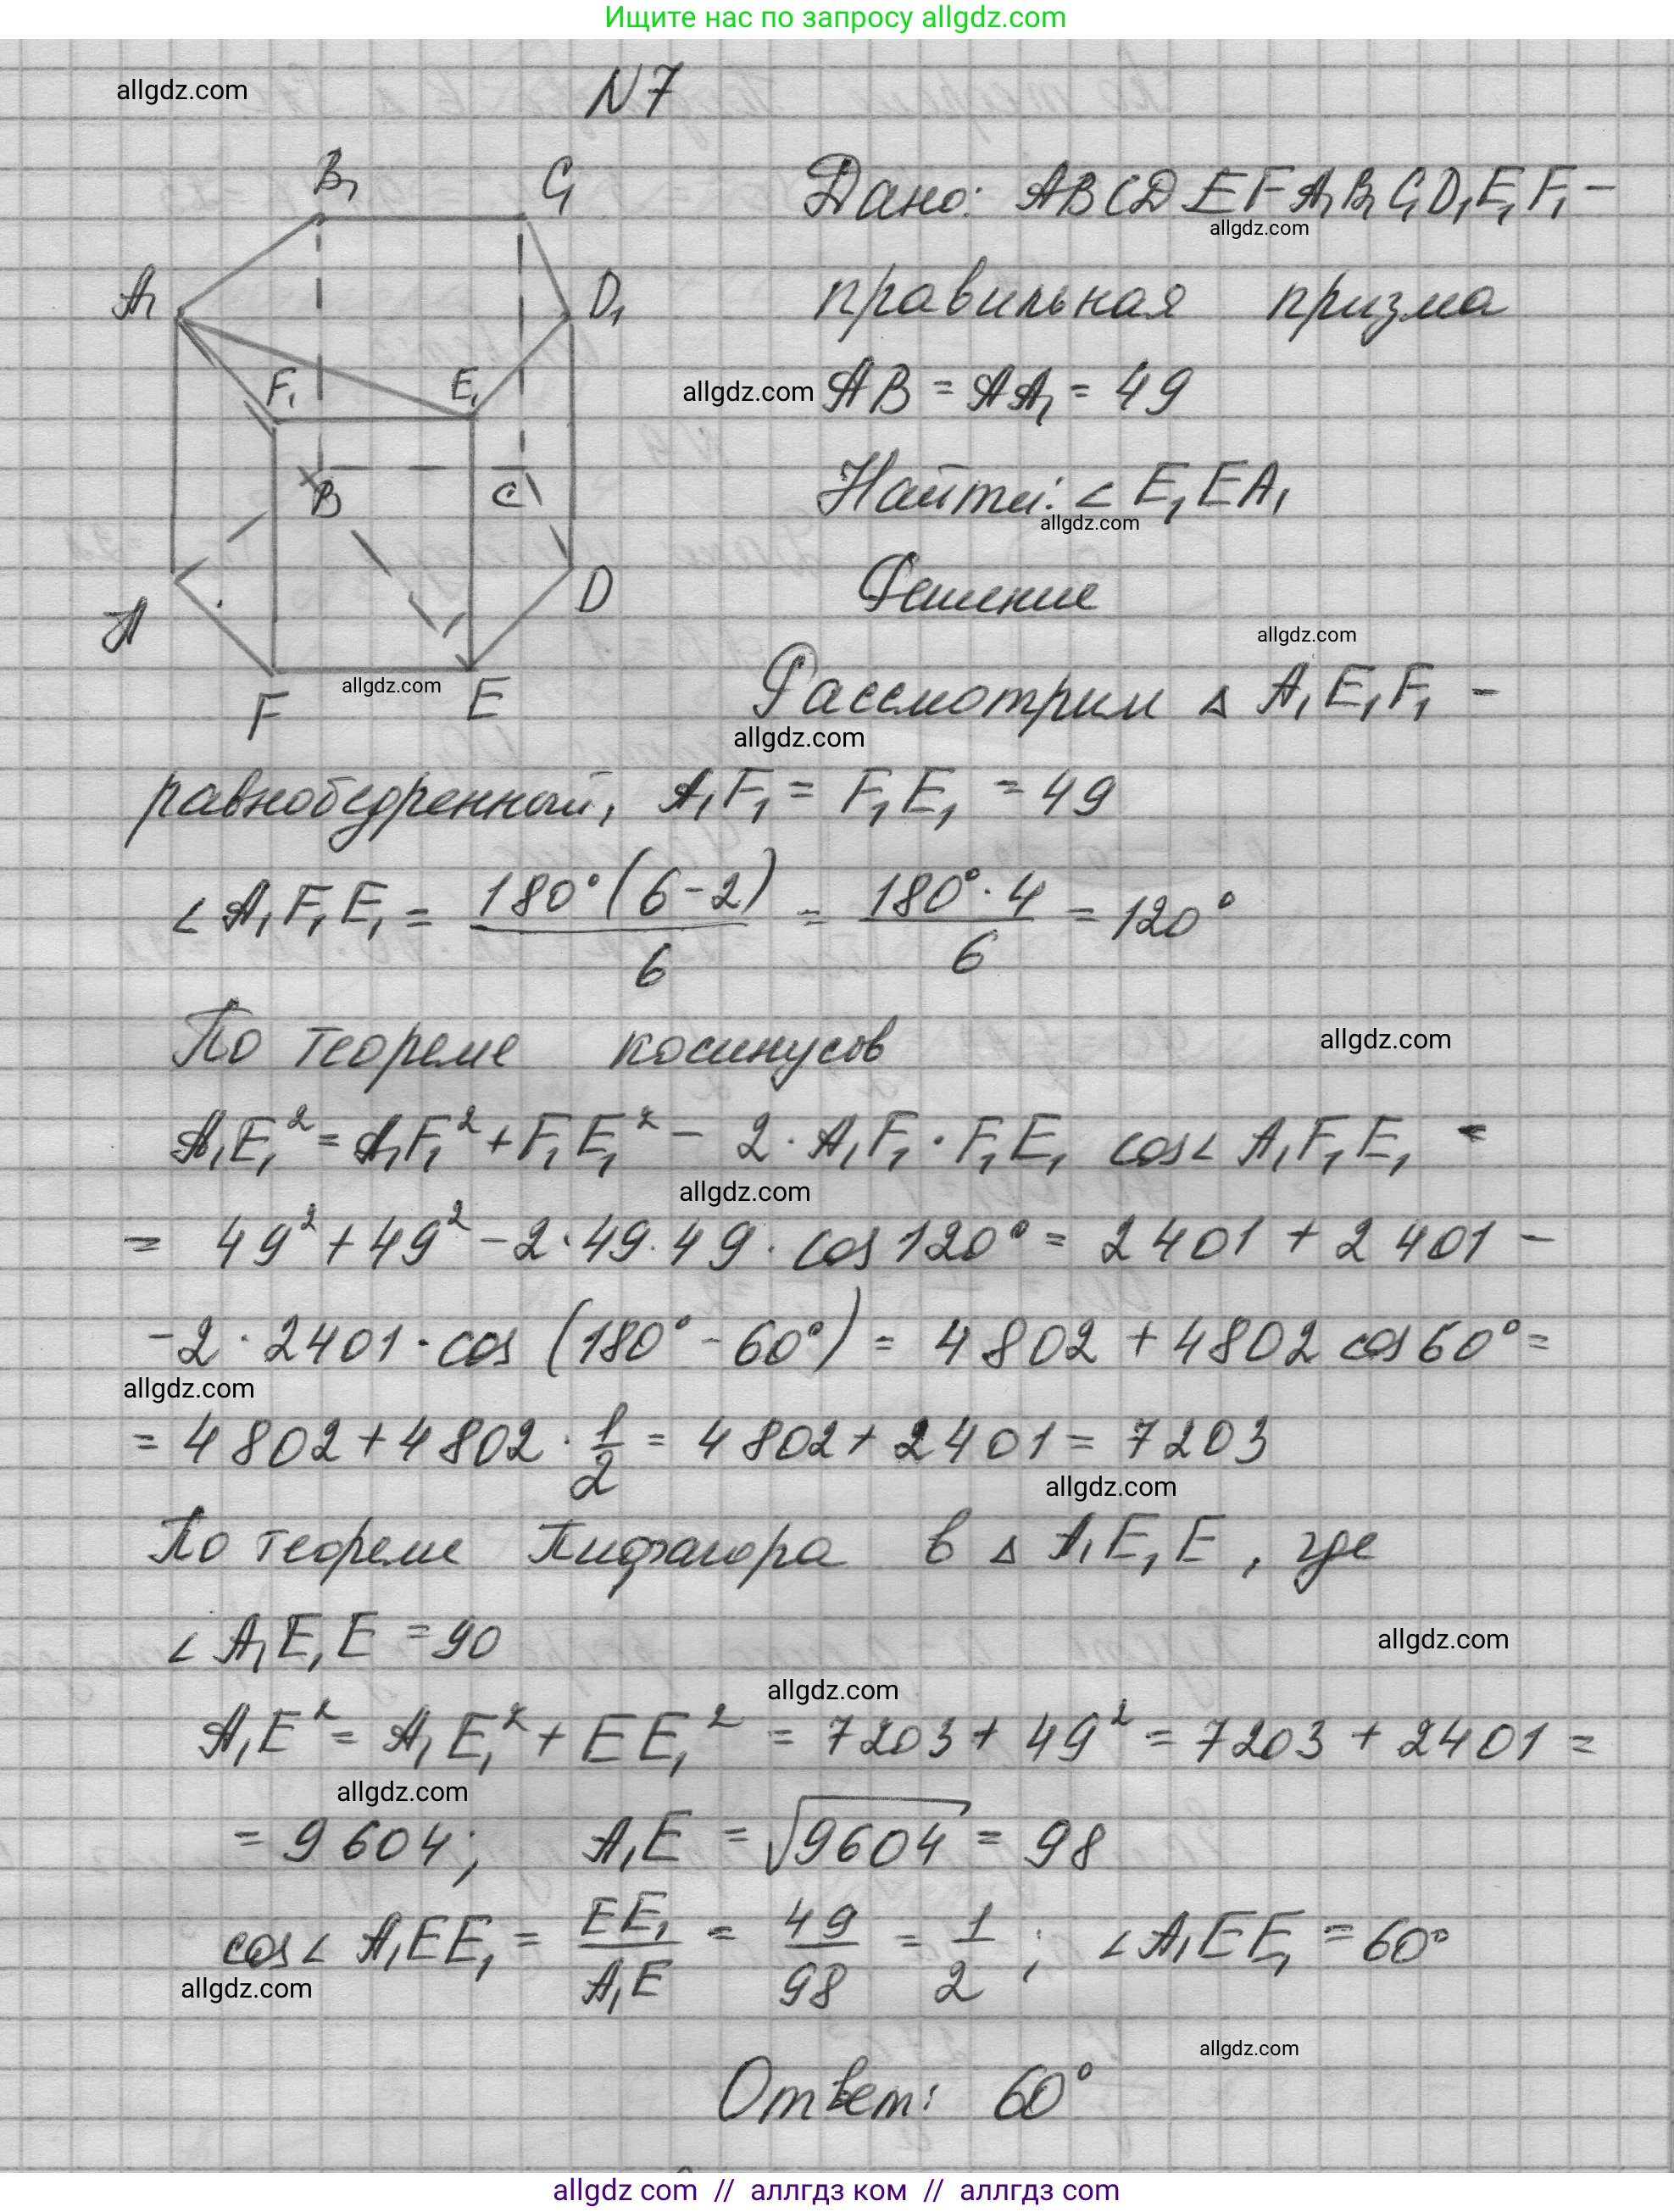 Ищите нас по запросу allgdz.com
allgdz.com
N7
B₁ C₁
A₁ D₁
F₁ E₁
B C
A D
F E
Дано: ABCDEFA₁B₁C₁D₁E₁F₁ –
allgdz.com
правильная призма
allgdz.com
AB = AA₁ = 49
Найти: ∠E₁EA₁
allgdz.com
Решение
allgdz.com
allgdz.com
Рассмотрим △ A₁E₁F₁ –
allgdz.com
равнобедренный, A₁F₁ = F₁E₁ = 49
∠A₁F₁E₁ = 180°(6-2)/6 = 180°·4/6 = 120°
По теореме косинусов
allgdz.com
A₁E₁² = A₁F₁² + F₁E₁² – 2·A₁F₁·F₁E₁ cos∠A₁F₁E₁ =
allgdz.com
= 49² + 49² – 2·49·49·cos120° = 2401 + 2401 –
-2·2401·cos(180°-60°) = 4802 + 4802 cos60° =
allgdz.com
= 4802 + 4802·1/2 = 4802 + 2401 = 7203
allgdz.com
По теореме Пифагора в △ A₁E₁E, где
∠A₁E₁E = 90
allgdz.com
allgdz.com
A₁E² = A₁E₁² + EE₁² = 7203 + 49² = 7203 + 2401 =
allgdz.com
= 9604; A₁E = √9604 = 98
cos∠A₁EE₁ = EE₁/A₁E = 49/98 = 1/2; ∠A₁EE₁ = 60°
allgdz.com
allgdz.com
Ответ: 60°
allgdz com // аллгдз ком // аллгдз com